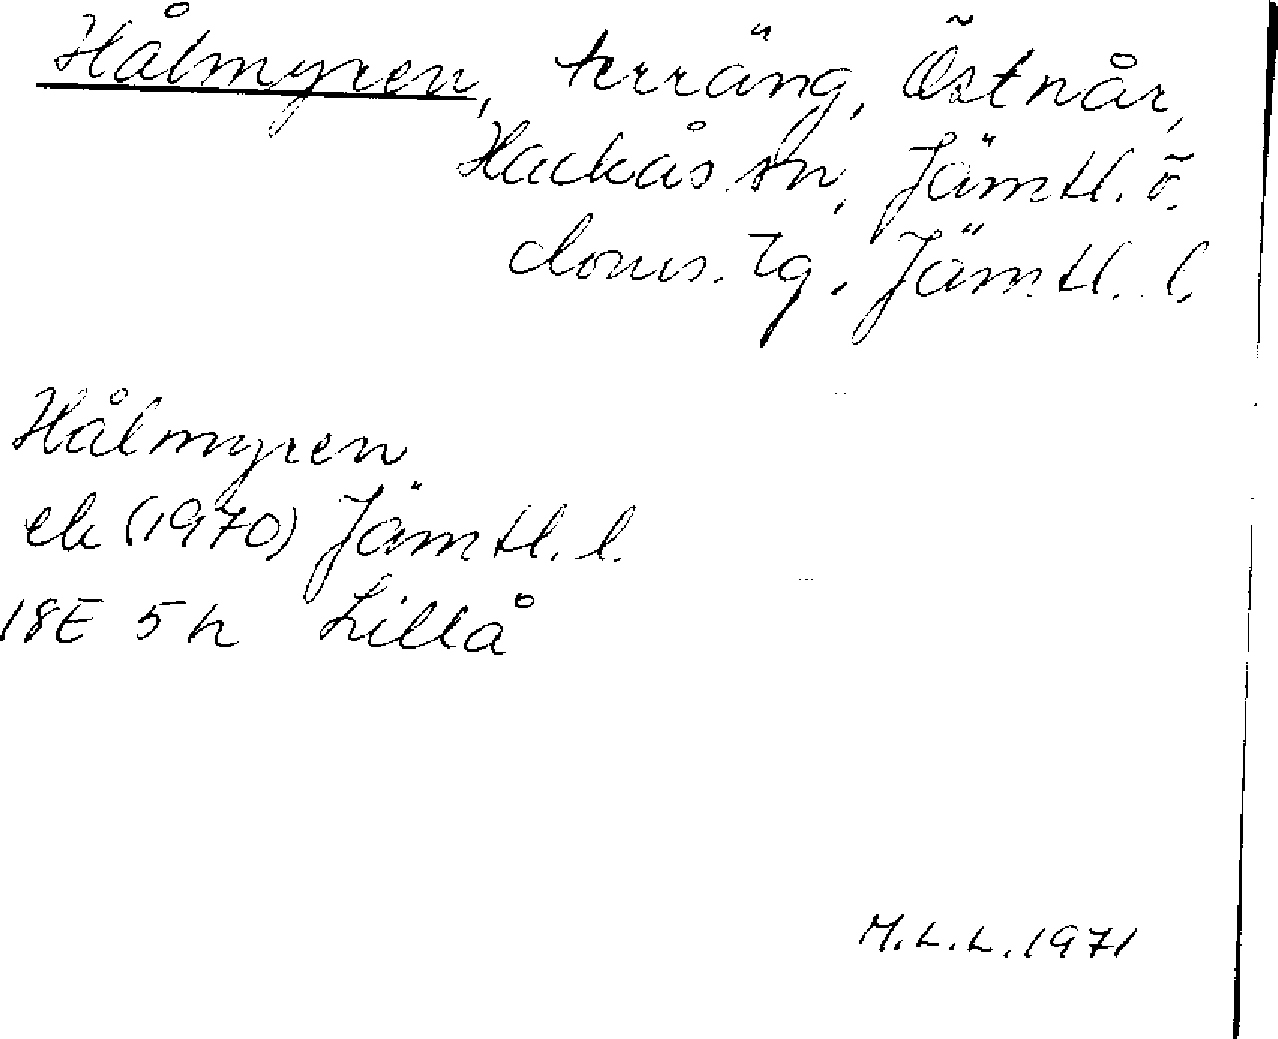 Hålmyren, terräng, Östnår,
Hackås sn, Jämtl. ö.
doms. Tg. Jämtl. l.
Hålmyren
ek (1970) Jämtl. l.
18E 5h Lillå
M.L.L. 1971